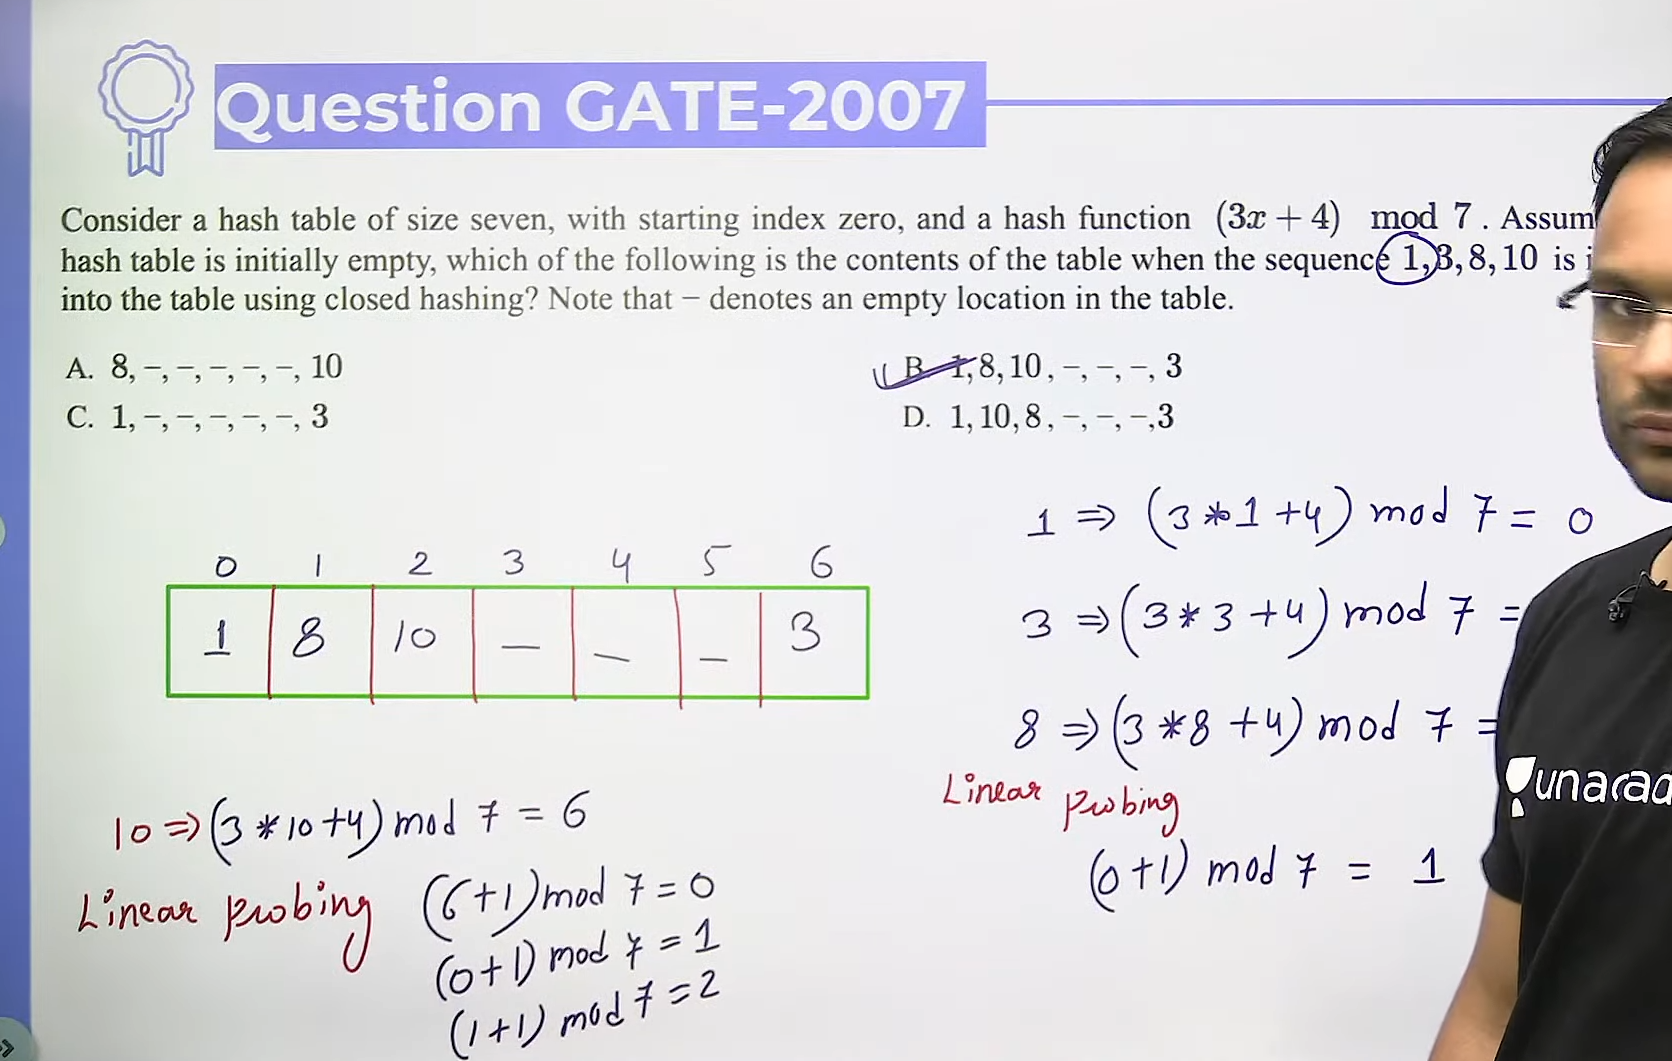 Question GATE-2007
Consider a hash table of size seven, with starting index zero, and a hash function (3x + 4) mod 7. Assum
hash table is initially empty, which of the following is the contents of the table when the sequence 1, 3, 8, 10 is i
into the table using closed hashing? Note that − denotes an empty location in the table.
A. 8, −, −, −, −, −, 10
B. 1, 8, 10, −, −, −, 3
C. 1, −, −, −, −, −, 3
D. 1, 10, 8, −, −, −,3
1 ⇒ (3*1+4) mod 7 = 0
3 ⇒ (3*3+4) mod 7 =
8 ⇒ (3*8+4) mod 7 =
Linear probing
(0+1) mod 7 = 1
0 1 2 3 4 5 6
1 8 10 _ _ _ 3
10 ⇒ (3*10+4) mod 7 = 6
Linear probing (6+1) mod 7 = 0
(0+1) mod 7 = 1
(1+1) mod 7 = 2
unacad